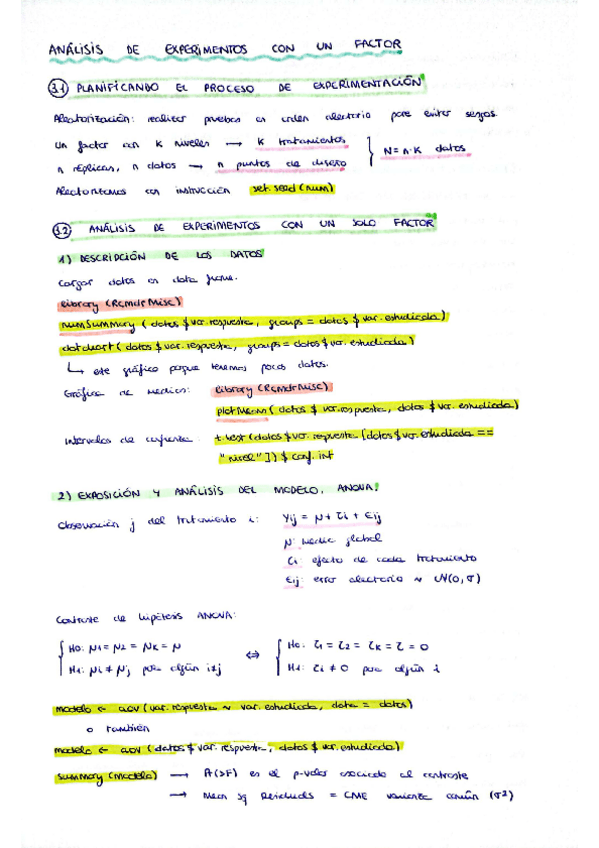 ANÁLISIS DE EXPERIMENTOS CON UN FACTOR
3.1 PLANIFICANDO EL PROCESO DE EXPERIMENTACIÓN
Aleatorización: realizar pruebas en orden aleatorio para evitar sesgos.
Un factor con K niveles → K tratamientos
n réplicas, n datos → n puntos de diseño
N = n·K datos
Aleatorizamos con instrucción set.seed(num)
3.2 ANÁLISIS DE EXPERIMENTOS CON UN SOLO FACTOR
1) DESCRIPCIÓN DE LOS DATOS
Cargar datos en data frame.
library(RcmdrMisc)
numSummary(datos$var.respuesta, groups = datos$var.estudiada)
dotchart(datos$var.respuesta, groups = datos$var.estudiada)
↳ este gráfico porque tenemos pocos datos.
Gráfica de medias: library(RcmdrMisc)
plotMeans(datos$var.respuesta, datos$var.estudiada)
Intervalos de confianza: t.test(datos$var.respuesta[datos$var.estudiada ==
"nivel"])$conf.int
2) EXPOSICIÓN Y ANÁLISIS DEL MODELO. ANOVA.
Observación j del tratamiento i: Yij = μ + τi + εij
μ: media global
τi: efecto de cada tratamiento
εij: error aleatorio ~ N(0,σ)
Contraste de hipótesis ANOVA:
H0: μ1 = μ2 = μK = μ ⇔ H0: τ1 = τ2 = τK = τ = 0
H1: μi ≠ μj para algún i≠j H1: τi ≠ 0 para algún i
modelo ← aov(var.respuesta ~ var.estudiada, data = datos)
o también
modelo ← aov(datos$var.respuesta, datos$var.estudiada)
summary(modelo) → Pr(>F) es el p-valor asociado al contraste
→ Mean Sq Residuals = CME varianza común (σ²)